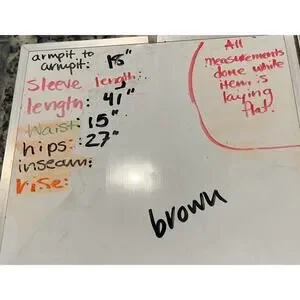 armpit to
armpit: 18"
Sleeve length:
length: 41"
Waist: 15"
hips: 27"
inseam:
rise:
All
measurements
done while
item is
laying
flat.
brown